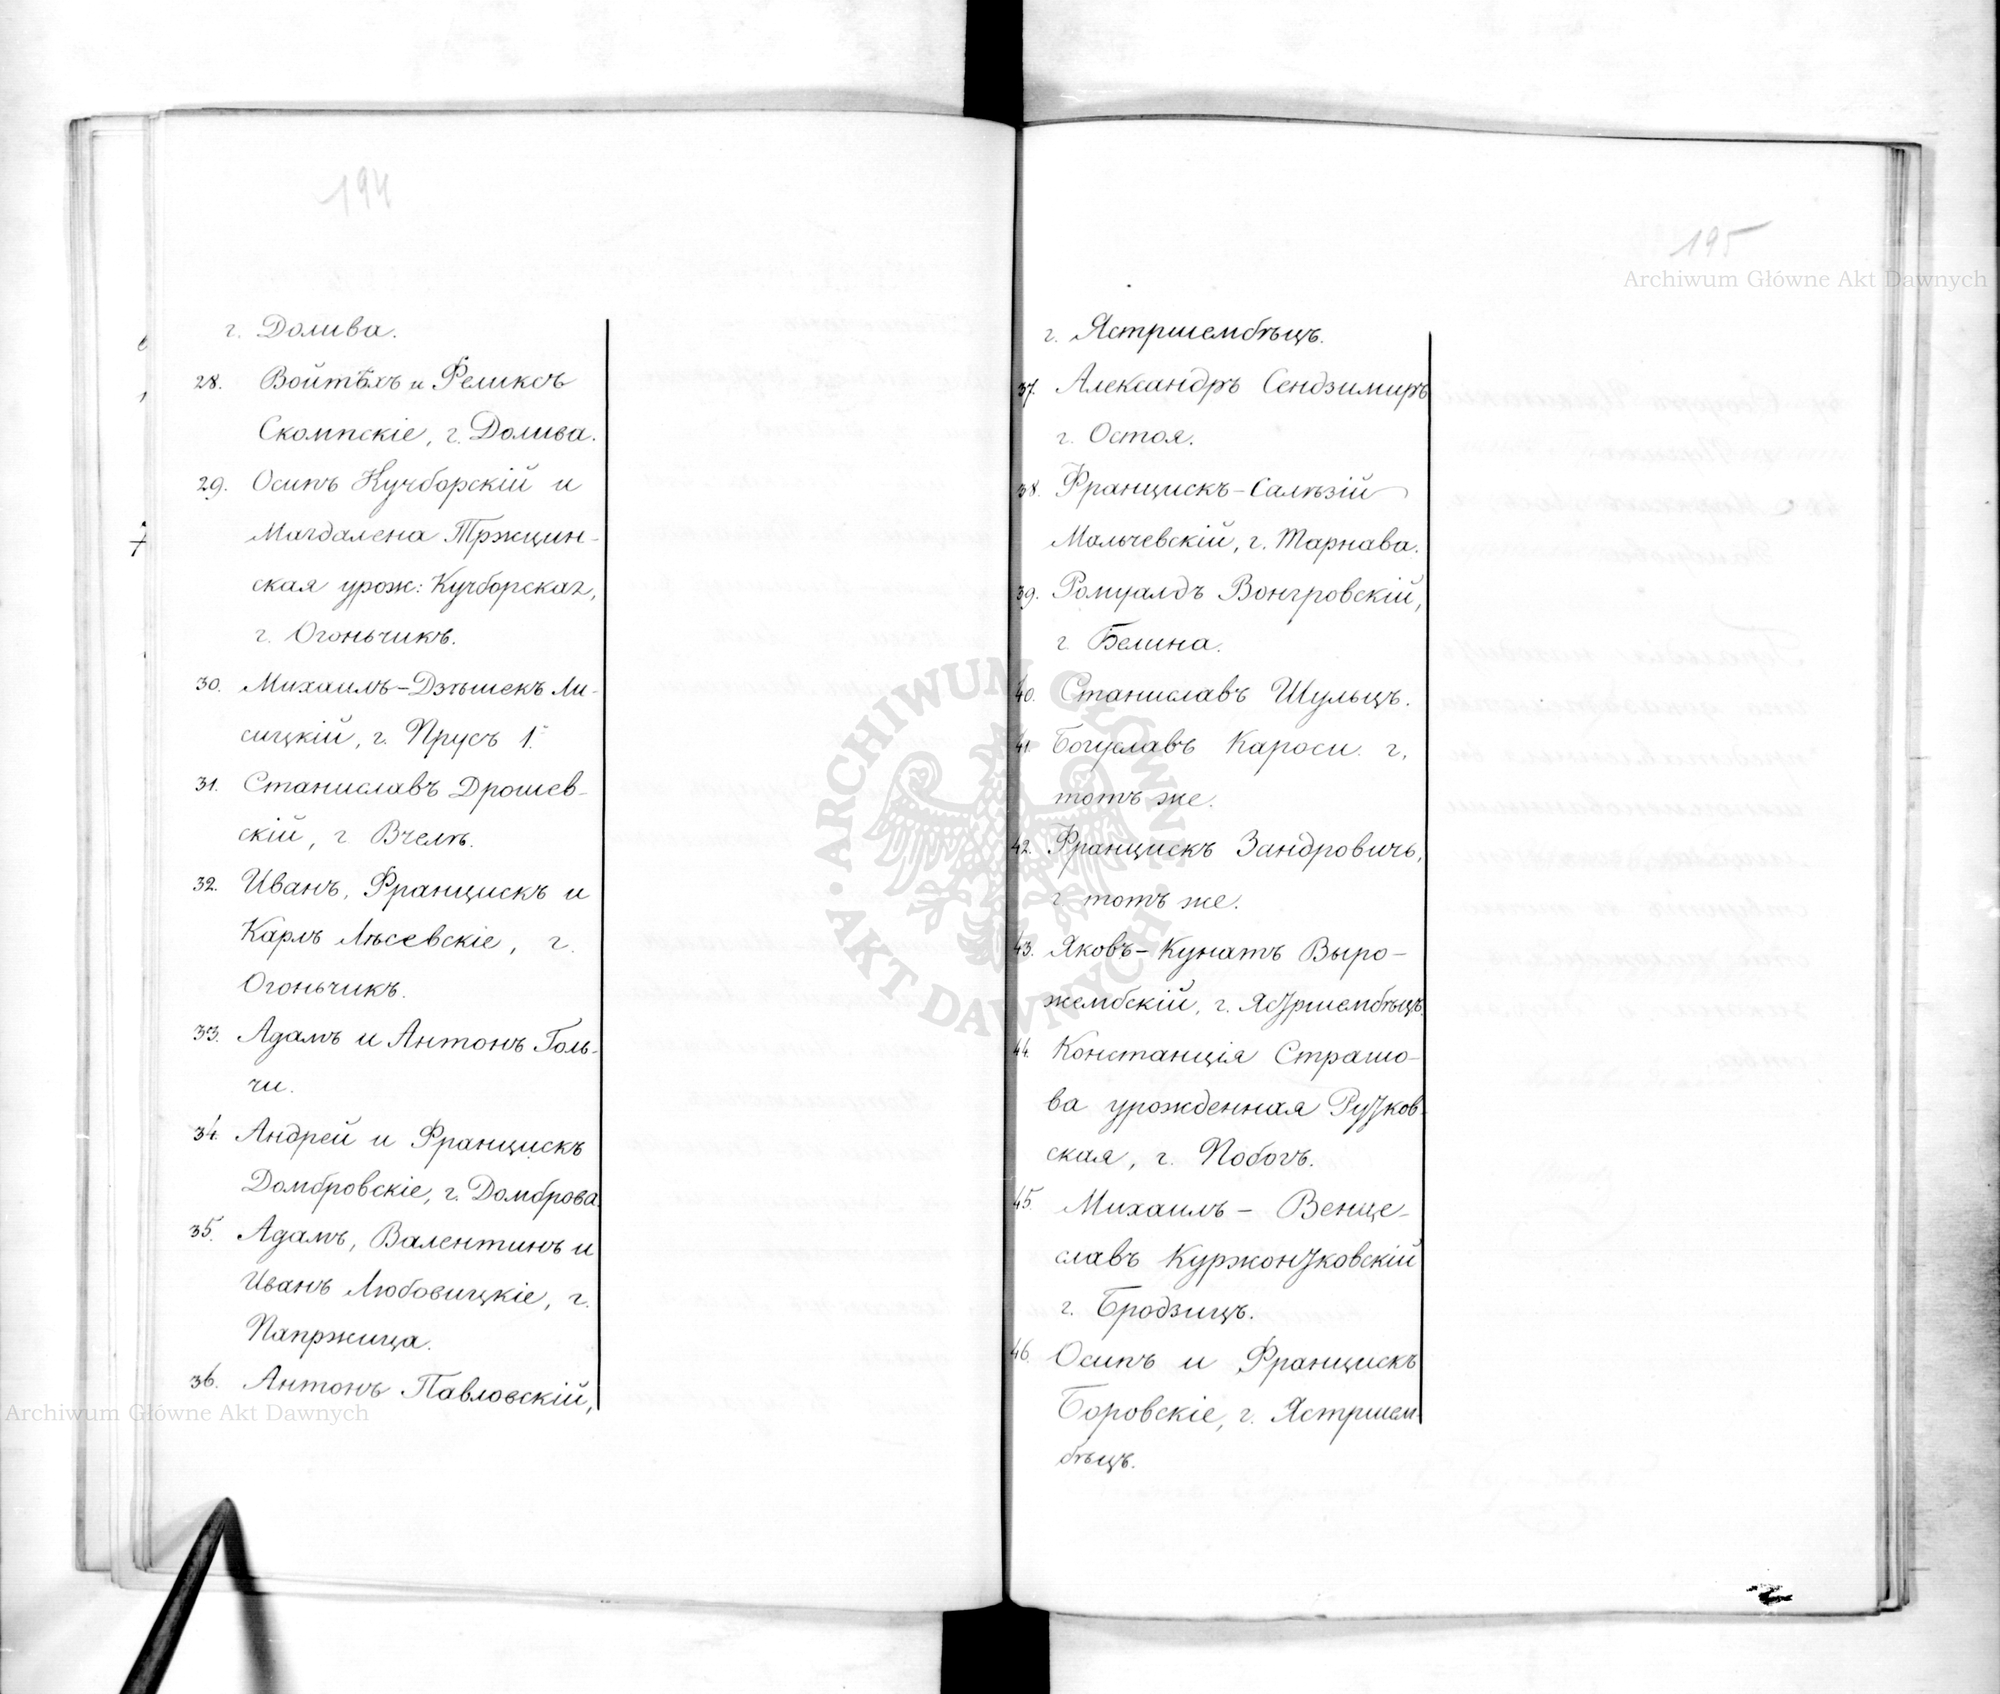 194
г. Долива.
28. Войтѣхъ и Феликсъ
Скомпскіе, г. Долива.
29. Осипъ Кучборскій и
Магдалена Тржцин-
ская урож: Кучборская,
г. Огоньчикъ.
30. Михаилъ-Дзѣшекъ Ли-
сицкій, г. Прусъ 1.
31. Станиславъ Дрошев-
скій, г Вчелѣ.
32. Иванъ, Францискъ и
Карлъ Лѣсевскіе, г.
Огоньчикъ.
33. Адамъ и Антонъ Голь-
чи.
34. Андрей и Францискъ
Домбровскіе, г. Домброва
35. Адамъ, Валентинъ и
Иванъ Любовицкіе, г.
Папржица.
36. Антонъ Павловскій,
Archiwum Główne Akt Dawnych
195
Archiwum Główne Akt Dawnych
г. Ястршембѣцъ.
37. Александръ Сендзимиръ
г. Остоя.
38. Францискъ-Салѣзій
Мальчевскій, г. Тарнава.
39. Ромуалдъ Вонгровскій,
г Белина.
40. Станиславъ Шульцъ.
41. Богуславъ Кароси. г,
тотъ же.
42. Францискъ Зандровичъ,
г тотъ же.
43. Яковъ-Кунатъ Выро-
жембскій, г. Ястршембѣцъ.
44. Констанція Страшо-
ва урожденная Рутков-
ская, г. Побогъ.
45. Михаилъ - Венце-
славъ Куржонтковскій
г. Бродзицъ.
46. Осипъ и Францискъ
Боровскіе, г. Ястршем-
бѣцъ.
ARCHIWUM GŁÓWNE AKT DAWNYCH